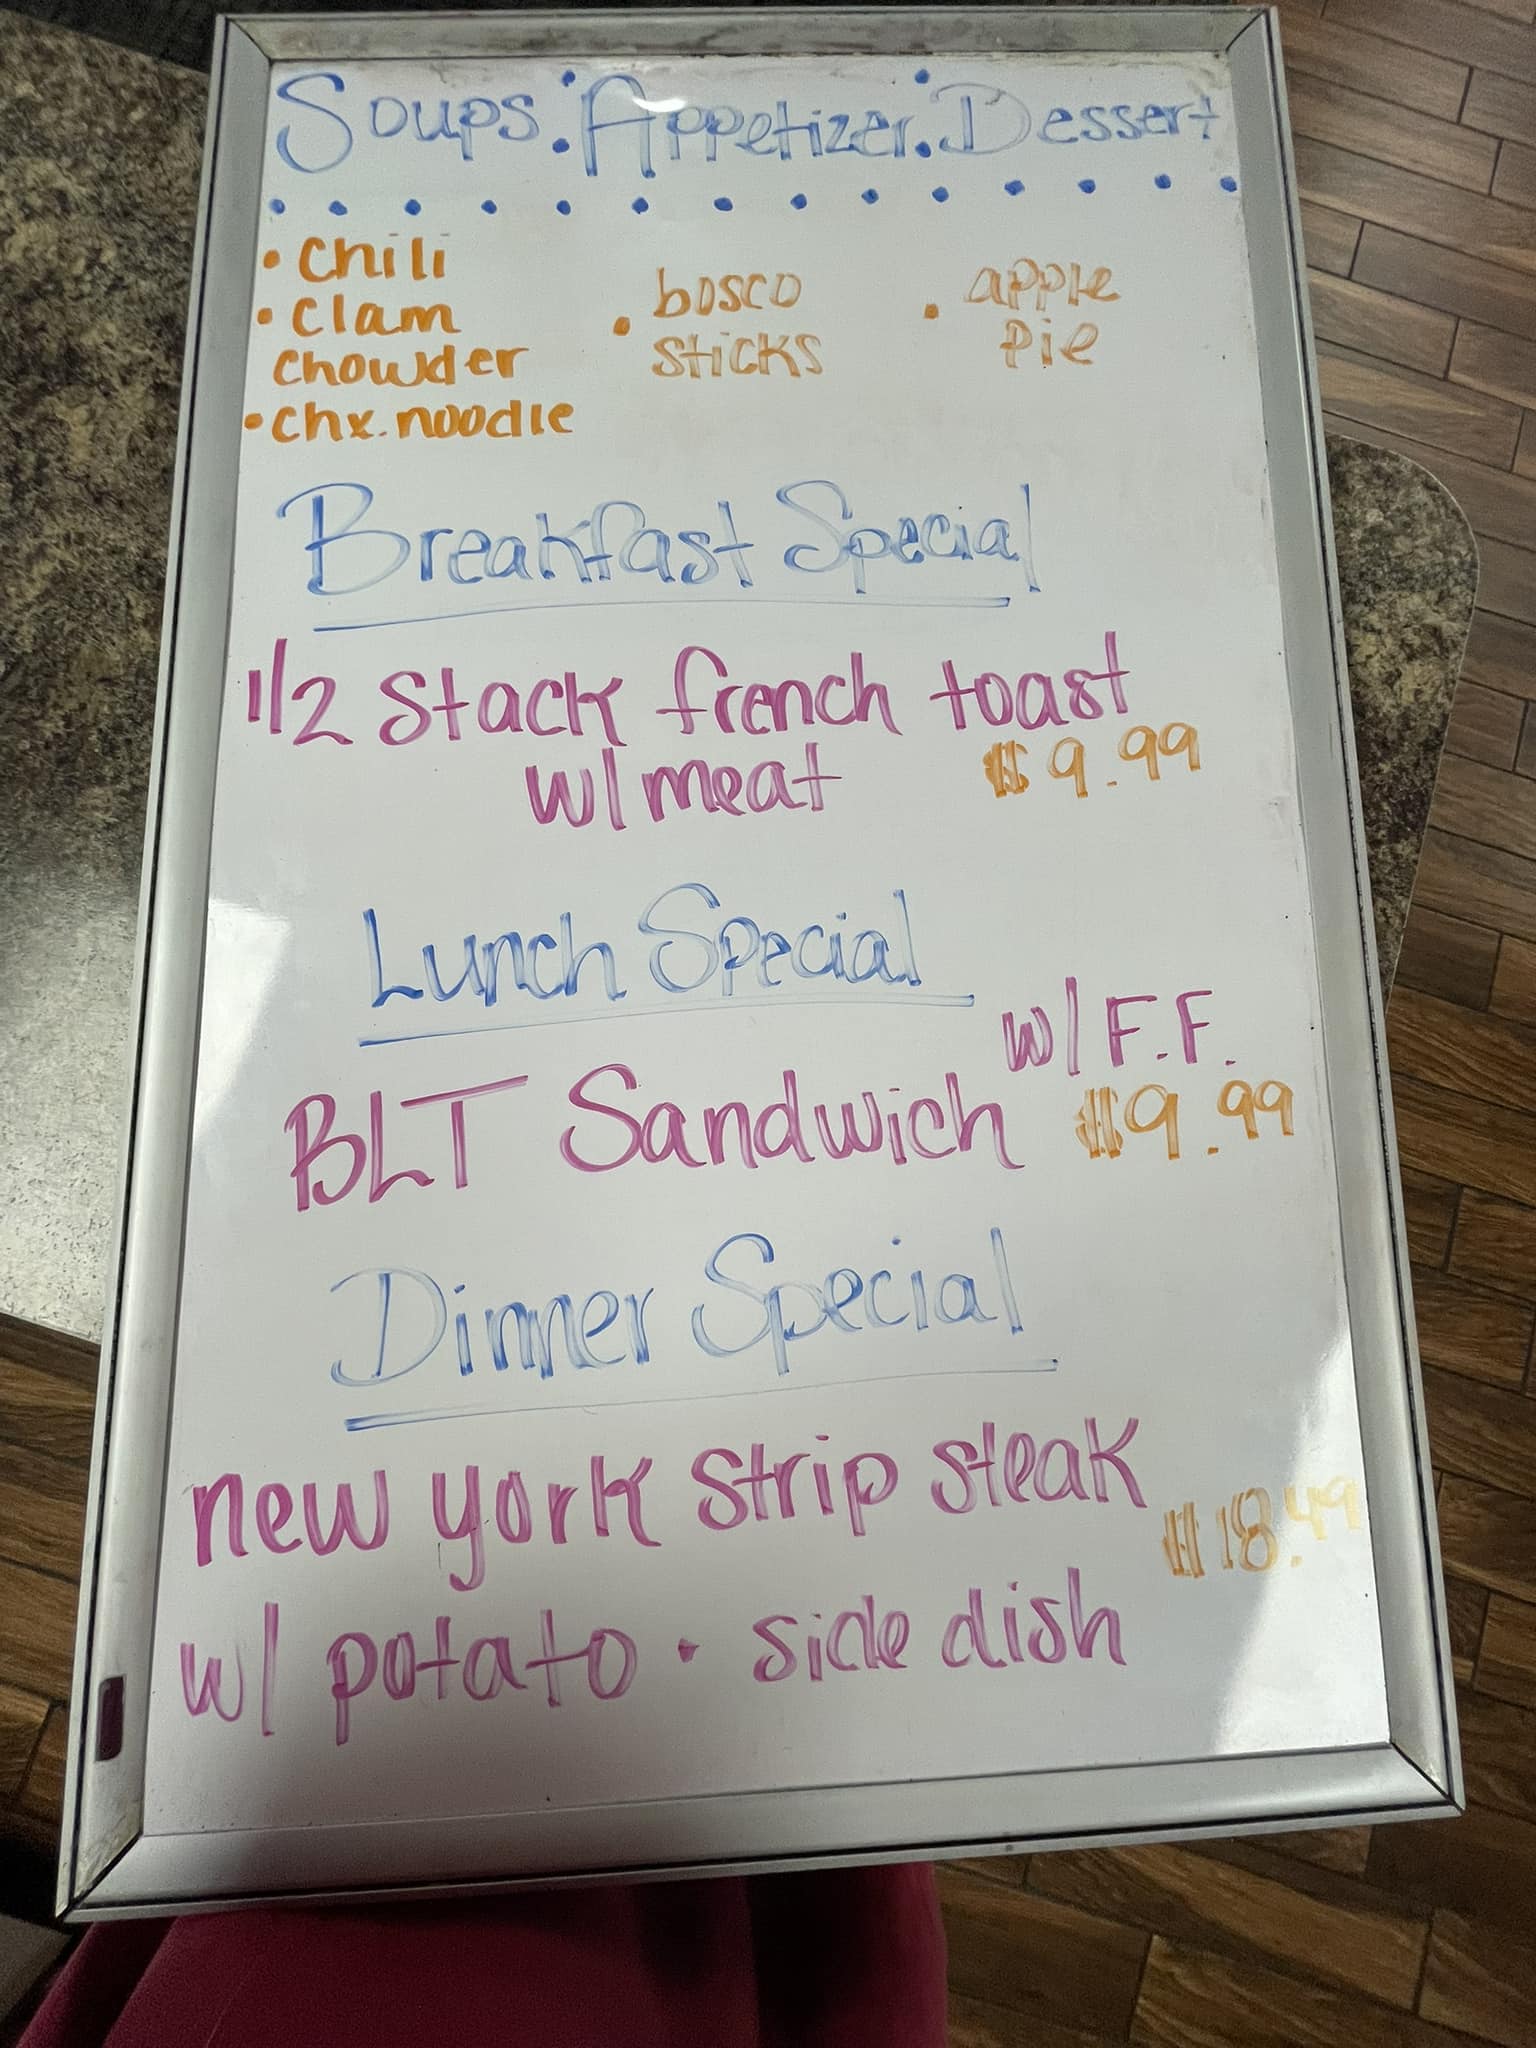 Soups : Appetizer : Dessert
• Chili
• Clam
chowder
• Chx. noodle
• bosco
sticks
• apple
pie
Breakfast Special
1/2 Stack french toast
w/ meat $9.99
Lunch Special
w/ F.F.
BLT Sandwich $9.99
Dinner Special
new york strip steak
$18.49
w/ potato • side dish